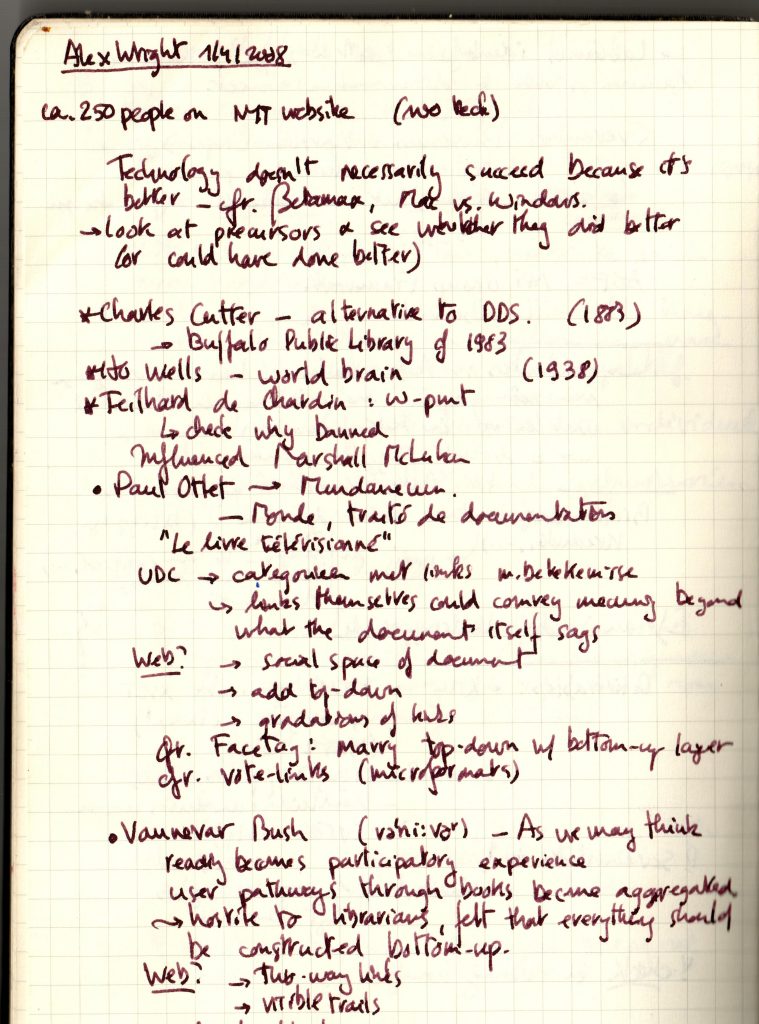 Alex Wright 1/4/2008
ca. 250 people on NYT website (two tech)
Technology doesn't necessarily succeed because it's
better – cfr. Betamax, Mac vs. Windows.
→ look at precursors & see whether they did better
(or could have done better)
* Charles Cutter – alternative to DDS. (1883)
→ Buffalo Public Library of 1983
* HG Wells – world brain (1938)
* Teilhard de Chardin : w-punt
↳ check why banned
Influenced Marshall McLuhan
• Paul Otlet → Mundaneum.
– Monde, traité de documentation
"Le livre télévisionné"
UDC → categorieen met links m. betekenisse
↳ links themselves could convey meaning beyond
what the document itself says
Web? → social space of document
→ add top-down
→ gradations of links
cfr. Facetag : marry top-down w/ bottom-up layer
cfr. vote-links (microformats)
• Vannevar Bush (və'ni:vər) – As we may think
reading becomes participatory experience
user pathways through books become aggregated.
→ hostile to librarians, felt that everything should
be constructed bottom-up.
Web? → two-way links
→ visible trails